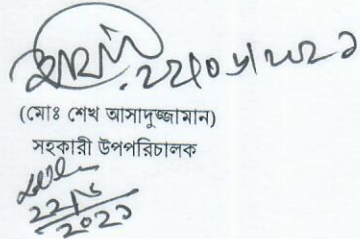 ২২/০৬/২০২১
(মোঃ শেখ আসাদুজ্জামান)
সহকারী উপপরিচালক
২২/৬
২০২১